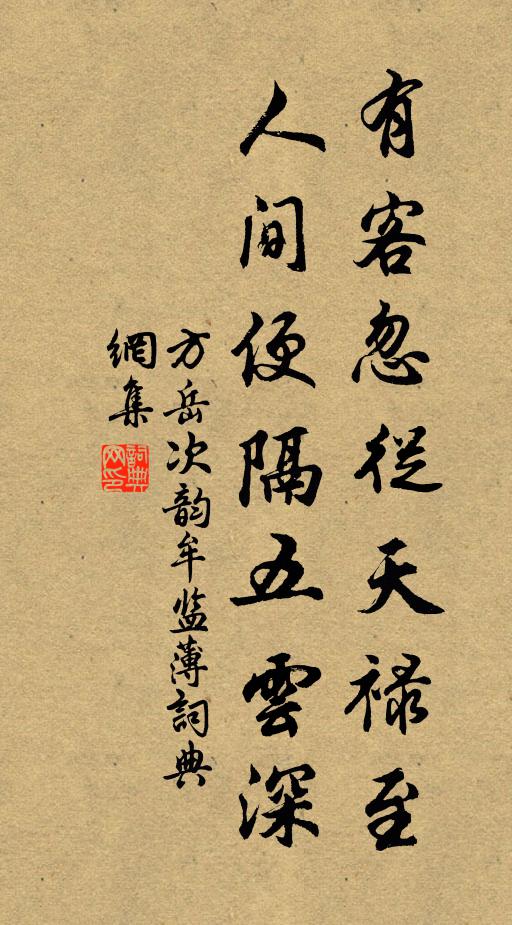 有客忽從天祿至
人间便隔五雲深
方岳次韵牟监薄詞典
網集
詞典网印